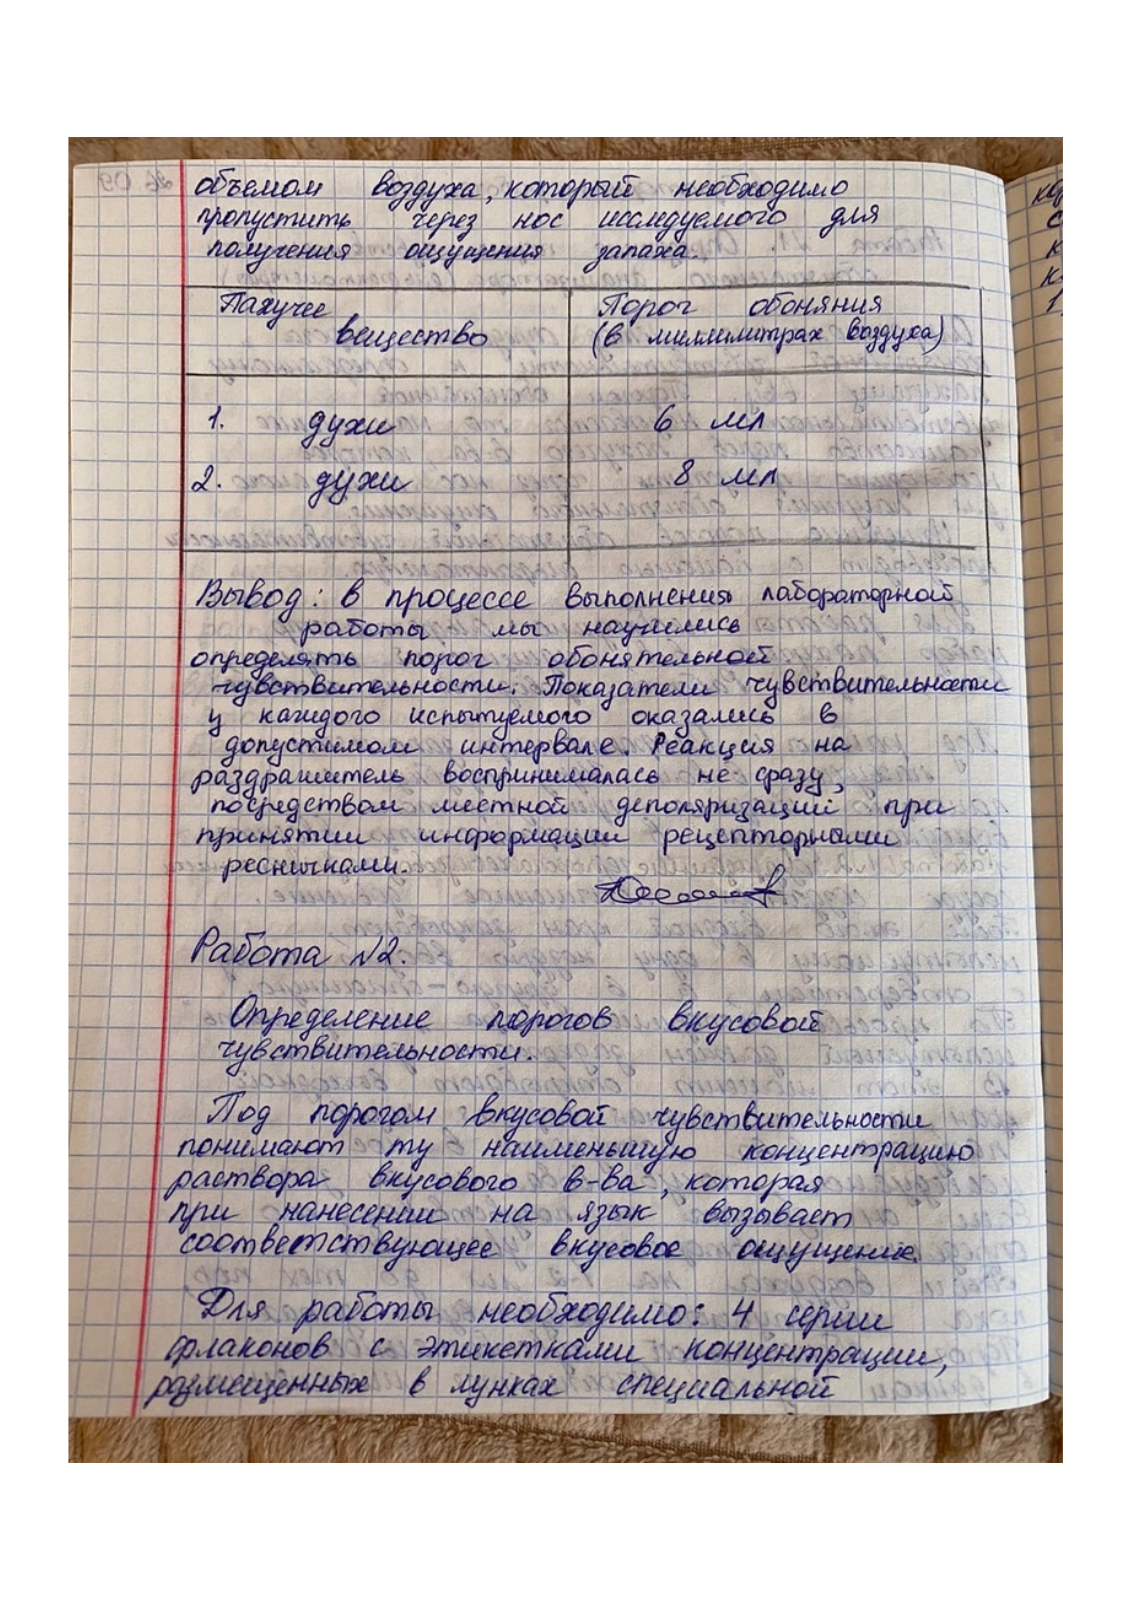 объемом воздуха, который необходимо
пропустить через нос исследуемого для
получения ощущения запаха.
Пахучее
вещество
Порог обоняния
(в миллимитрах воздуха)
1. духи 6 мл
2. духи 8 мл
Вывод: в процессе выполнения лабораторной
работы мы научились
определять порог обонятельной
чувствительности. Показатели чувствительности
у каждого испытуемого оказались в
допустимом интервале. Реакция на
раздражитель воспринималась не сразу,
посредством местной деполяризации при
принятии информации рецепторными
ресничками.
Работа №2.
Определение порогов вкусовой
чувствительности.
Под порогом вкусовой чувствительности
понимают ту наименьшую концентрацию
раствора вкусового в-ва, которая
при нанесении на язык вызывает
соответствующее вкусовое ощущение.
Для работы необходимо: 4 серии
флаконов с этикетками концентрации,
размещенных в лунках специальной